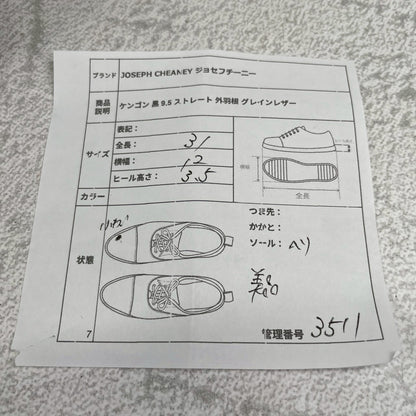 ブランド JOSEPH CHEANEY ジョセフチーニー
商品説明 ケンゴン 黒 9.5 ストレート 外羽根 グレインレザー
サイズ
表記：
全長： 31
横幅： 12
ヒール高さ： 3.5
ヒール高さ
横幅
全長
カラー
状態
つま先：
かかと：
ソール： ヘリ
美品
7
管理番号 3511